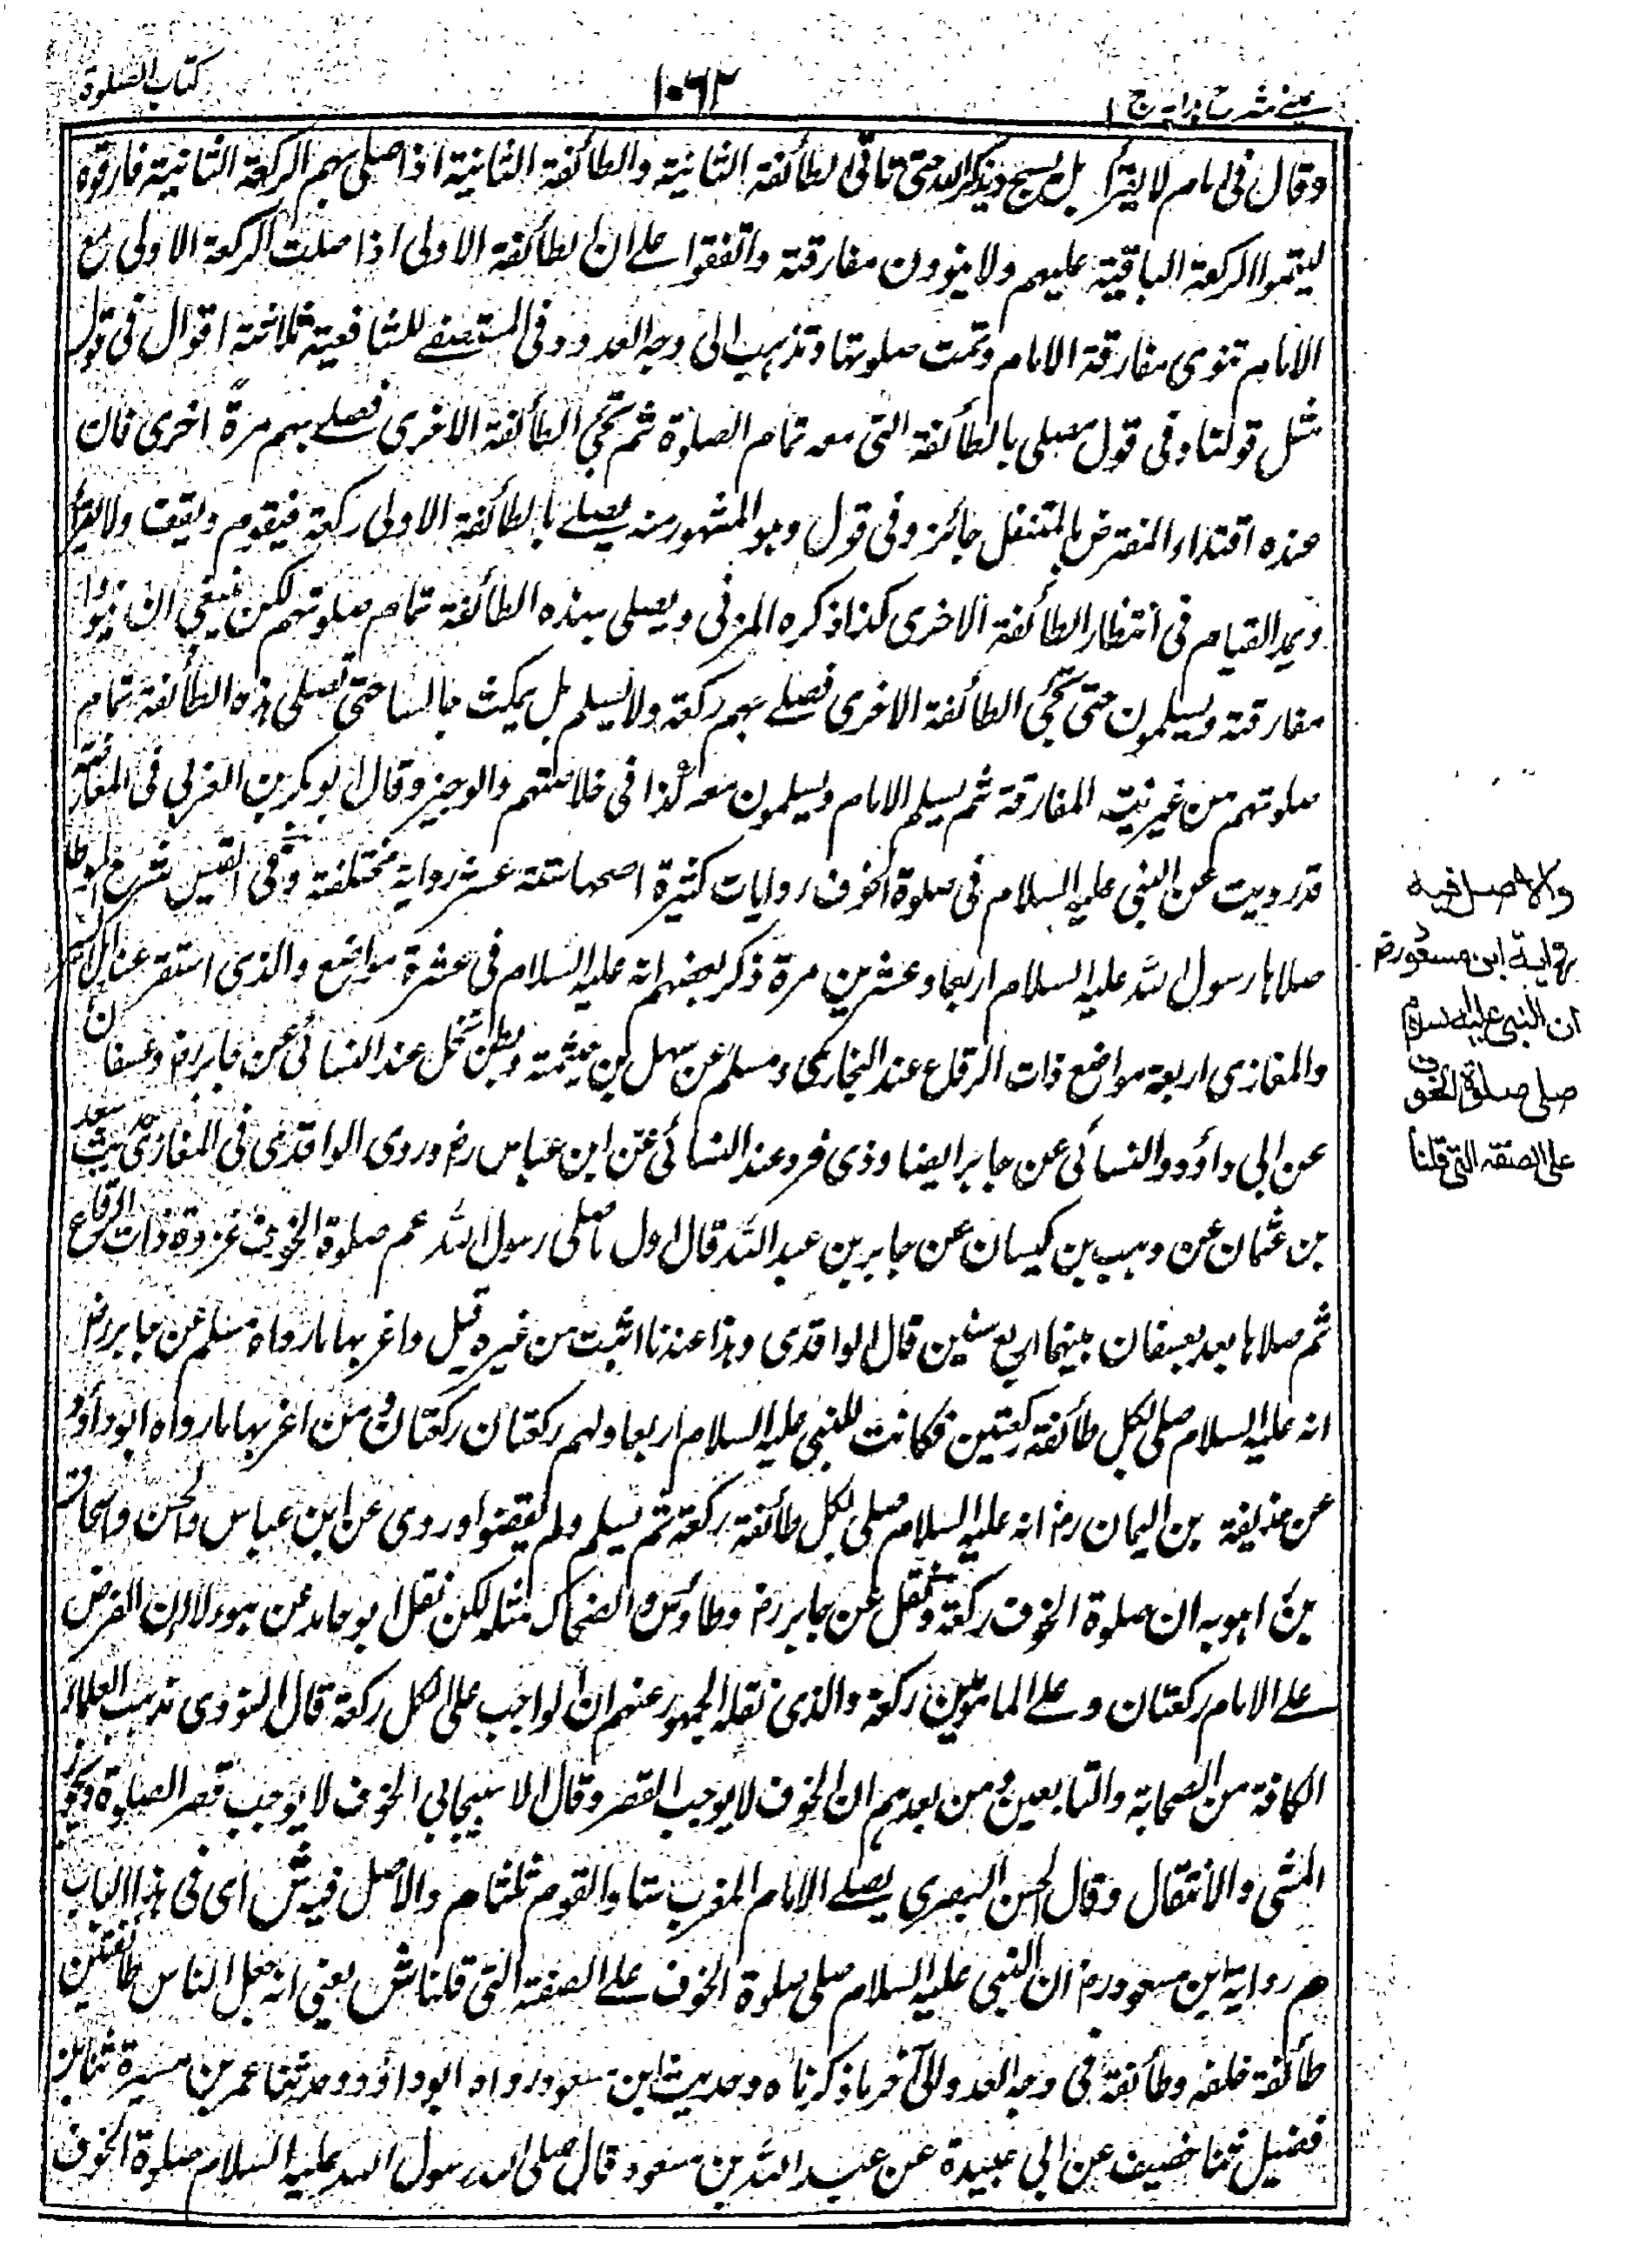 عینی شرح ہدایہ ج ۱
۱۰۶۲
کتاب الصلوۃ
وقال فی امام لا یقرأ بل یسبح ویذکر اللہ حتی تاتی الطائفۃ الثانیۃ والطائفۃ الثانیۃ اذا صلی بہم الرکعۃ الثانیۃ فارقوہ
لیتموا الرکعۃ الباقیۃ علیہم ولا ینوون مفارقتہ واتفقوا علے ان الطائفۃ الاولی اذا صلت الرکعۃ الاولی مع
الامام تنوی مفارقۃ الامام وتمت صلوتہا وتذہب الی وجہ العدو وفی المستصفے للشافعیۃ ثلاثۃ اقوال فی قول
مثل قولنا وفی قول یصلی بالطائفۃ التی معہ تمام الصلوۃ ثم تجئ الطائفۃ الاخری فصلے بہم مرۃ اخری فان
عندہ اقتداء المفترض بالمتنفل جائز وفی قول وہو المشہور منہ یصلے بالطائفۃ الاولی رکعۃ فیقوم ویقف ولا یقرأ
ویمد القیام فی انتظار الطائفۃ الاخری کذا ذکرہ المزنی ویصلی بہذہ الطائفۃ تمام صلوتہم لکن ینبغی ان ینووا
مفارقتہ ویسلمون حتی تجئ الطائفۃ الاخری فصلے بہم رکعۃ ولا یسلم بل یمکث جالسا حتی تصلی ہذہ الطائفۃ تمام
صلوتہم من غیر نیۃ المفارقۃ ثم یسلم الامام ویسلمون معہ کذا فی خلاصتہم والوجیز وقال ابوبکر بن العربی فی المعارضۃ
قد رویت عن النبی علیہ السلام فی صلوۃ الخوف روایات کثیرۃ اصحہا ستۃ عشر روایۃ مختلفۃ وفی القبس شرح الموطا
صلاہا رسول اللہ علیہ السلام اربعا وعشرین مرۃ ذکر بعضہم انہ علیہ السلام فی عشرۃ مواضع والذی استقر عند اہل السیر
والمغازی اربعۃ مواضع ذات الرقاع عند البخاری ومسلم عن سہل بن حیثمۃ وبطن نخل عند النسائی عن جابر رض وعسفان
عن ابی داؤد والنسائی عن جابر ایضا وذی قرد عند النسائی عن ابن عباس رض وروی الواقدی فی المغازی حدیث سعد
بن عثمان عن وہب بن کیسان عن جابر بن عبد اللہ قال اول ما صلی رسول اللہ عم صلوۃ الخوف غزوۃ ذات الرقاع
ثم صلاہا بعد بعسفان بینہما اربع سنین قال الواقدی وہذا عندنا اثبت من غیرہ قیل واغربہا ما رواہ مسلم عن جابر رض
انہ علیہ السلام صلی لکل طائفۃ رکعتین فکانت للنبی علیہ السلام اربعا ولہم رکعتان رکعتان ومن اغربہا ما رواہ ابوداؤد
عن حذیفۃ بن الیمان رض انہ علیہ السلام صلی بکل طائفۃ رکعۃ ثم یسلم ولم یقضوا وروی عن ابن عباس والحسن واسحاق
بن راہویہ ان صلوۃ الخوف رکعۃ ونقل عن جابر رض وطاؤس والضحاک مثلہ لکن نقل ابو حامد عن ہولاء ان الفرض
علے الامام رکعتان وعلے المامومین رکعۃ والذی نقلہ الجمہور عنہم ان الواجب علی الکل رکعۃ قال النووی مذہب العلماء
الکافۃ من الصحابۃ والتابعین ومن بعدہم ان الخوف لا یوجب القصر وقال الاسبیجابی الخوف لا یوجب قصر الصلوۃ ویجوز
المشی والانتقال وقال الحسن البصری یصلے الامام المغرب ستا والقوم ثلثا م والاصل فیہ ش ای فی ہذا الباب
م روایۃ ابن مسعود رض ان النبی علیہ السلام صلی صلوۃ الخوف علے الصفۃ التی قلنا ش یعنی انہ جعل الناس طائفتین
طائفۃ خلفہ وطائفۃ فی وجہ العدو الی آخر ما ذکرناہ وحدیث ابن مسعود رواہ ابوداؤد وحدثنا عمر بن میسرۃ ثنا ابن
فضیل ثنا خصیف عن ابی عبیدۃ عن عبد اللہ بن مسعود قال صلی اللہ رسول اللہ علیہ السلام صلوۃ الخوف
والاصل فیہ
روایۃ ابن مسعود رض
ان النبی علیہ السلام
صلی صلوۃ الخوف
علی الصفۃ التی قلنا